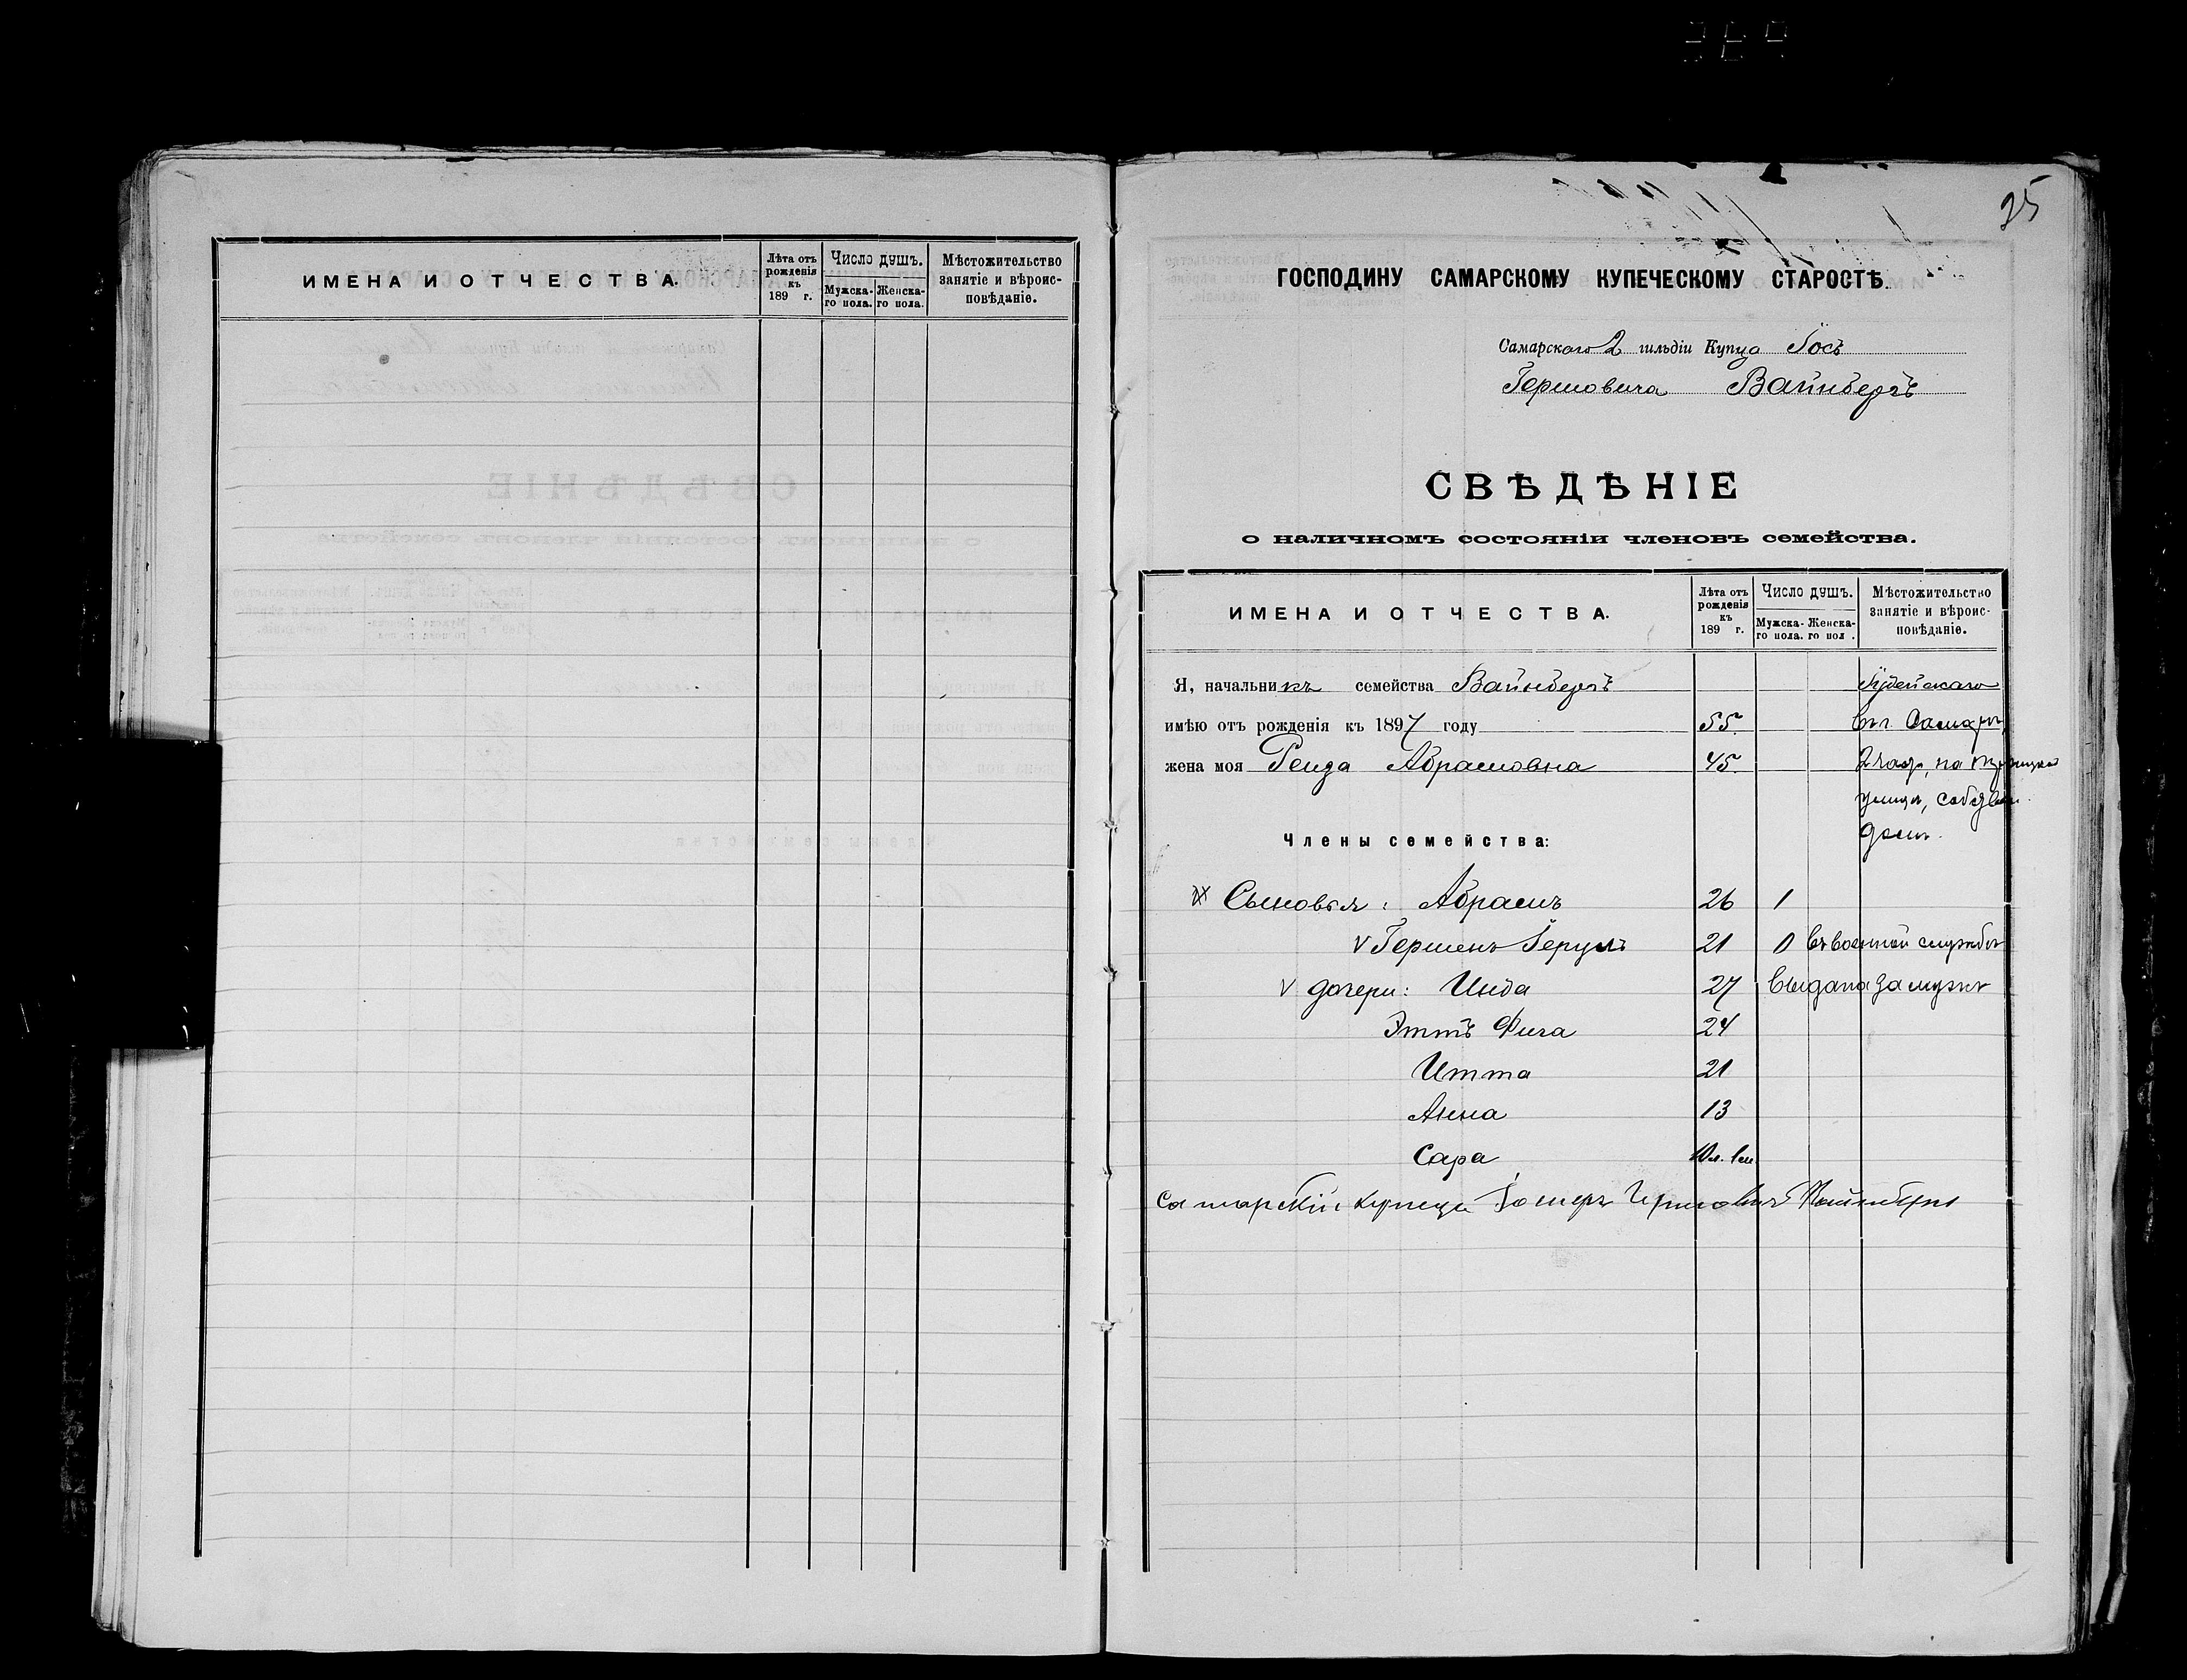 ИМЕНА И ОТЧЕСТВА.
Лѣта отъ рожденія къ 189 г.
Число душъ.
Мужска-го пола.
Женска-го пола.
Мѣстожительство занятіе и вѣроис-повѣданіе.
25
ГОСПОДИНУ САМАРСКОМУ КУПЕЧЕСКОМУ СТАРОСТѢ.
Самарскаго 2 гильдіи Купца Іосъ
Гершовича Вайнбергъ
СВѢДѢНІЕ
о наличномъ состояніи членовъ семейства.
ИМЕНА И ОТЧЕСТВА.
Лѣта отъ рожденія къ 189 г.
Число душъ.
Мужска-го пола.
Женска-го пол .
Мѣстожительство занятіе и вѣроис-повѣданіе.
Я, начальникъ семейства Вайнбергъ Іудейскаго
имѣю отъ рожденія къ 1897 году 55. въ г. Самарѣ,
жена моя Рейза Абрамовна 45. 2 част, на
улицѣ,
домъ.
Члены семейства:
Сыновья: Абрамъ 26 1
v Гершенъ Іерулъ 21 0 въ военной службѣ
v дочери: Инда 27 выдана замужъ
Эттъ Фига 24
Итта 21
Анна 13
Сара 10 л.
Самарскій купецъ Гершовичъ Вайнбергъ